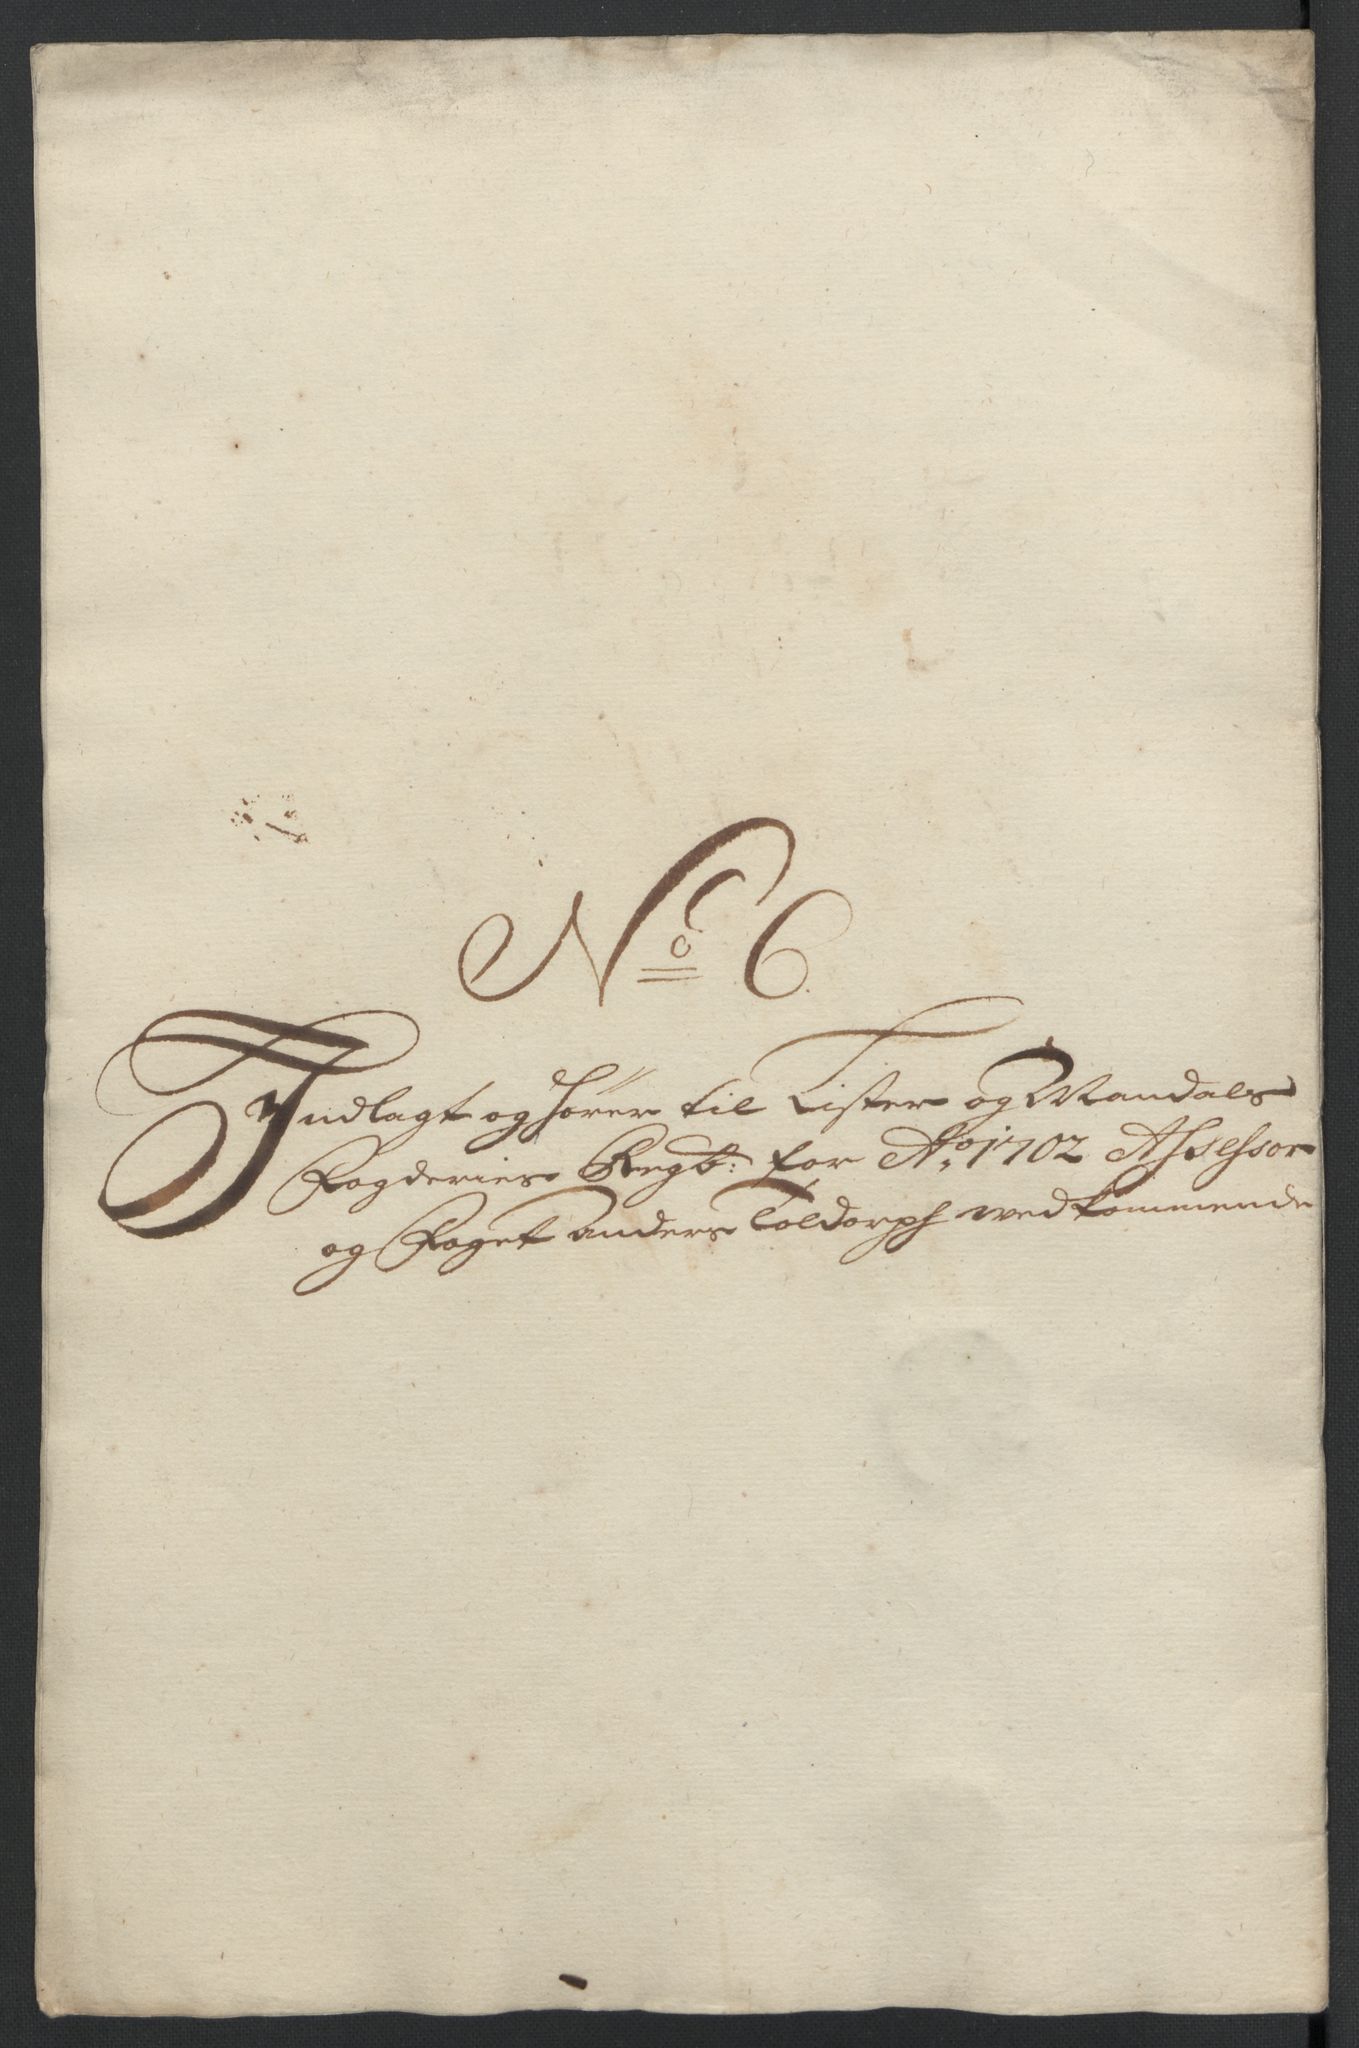 No 6.
Indlagt og hører til Lister og Mandals
Fogderies Regb: for Ao 1702 Assessor
og Foget Anders Toldorph wedkommende